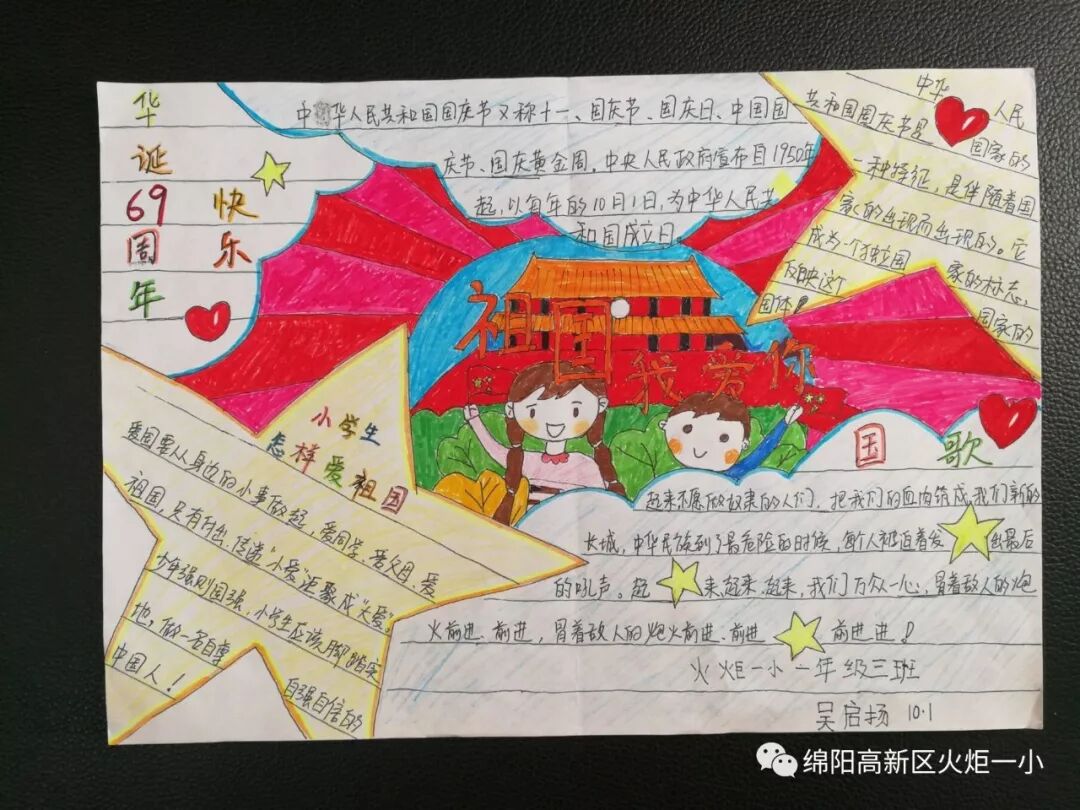 华诞69周年
快乐
中华人民共和国国庆节又称十一、国庆节、国庆日、中国国
庆节、国庆黄金周。中央人民政府宣布自1950年
起,以每年的10月1日,为中华人民共
和国成立日
中华人民
共和国国庆节是国家的
一种特征,是伴随着国
家的出现而出现的。它
成为一个独立国家的标志,
反映这个国家的
国体!
祖国我爱你
小学生
怎样爱祖国
爱国要从身边的小事做起,爱同学、爱父母、爱
祖国,只有付出,传递“小爱”汇聚成“大爱”。
少年强则国强,小学生应该脚踏实
地,做一名自尊自强自信的
中国人!
国歌
起来不愿做奴隶的人们,把我们的血肉筑成我们新的
长城,中华民族到了最危险的时候,每个人被迫着发出最后
的吼声。起来、起来、起来,我们万众一心,冒着敌人的炮
火前进、前进,冒着敌人的炮火前进、前进前进进!
火炬一小一年级三班
吴启扬 10·1
绵阳高新区火炬一小